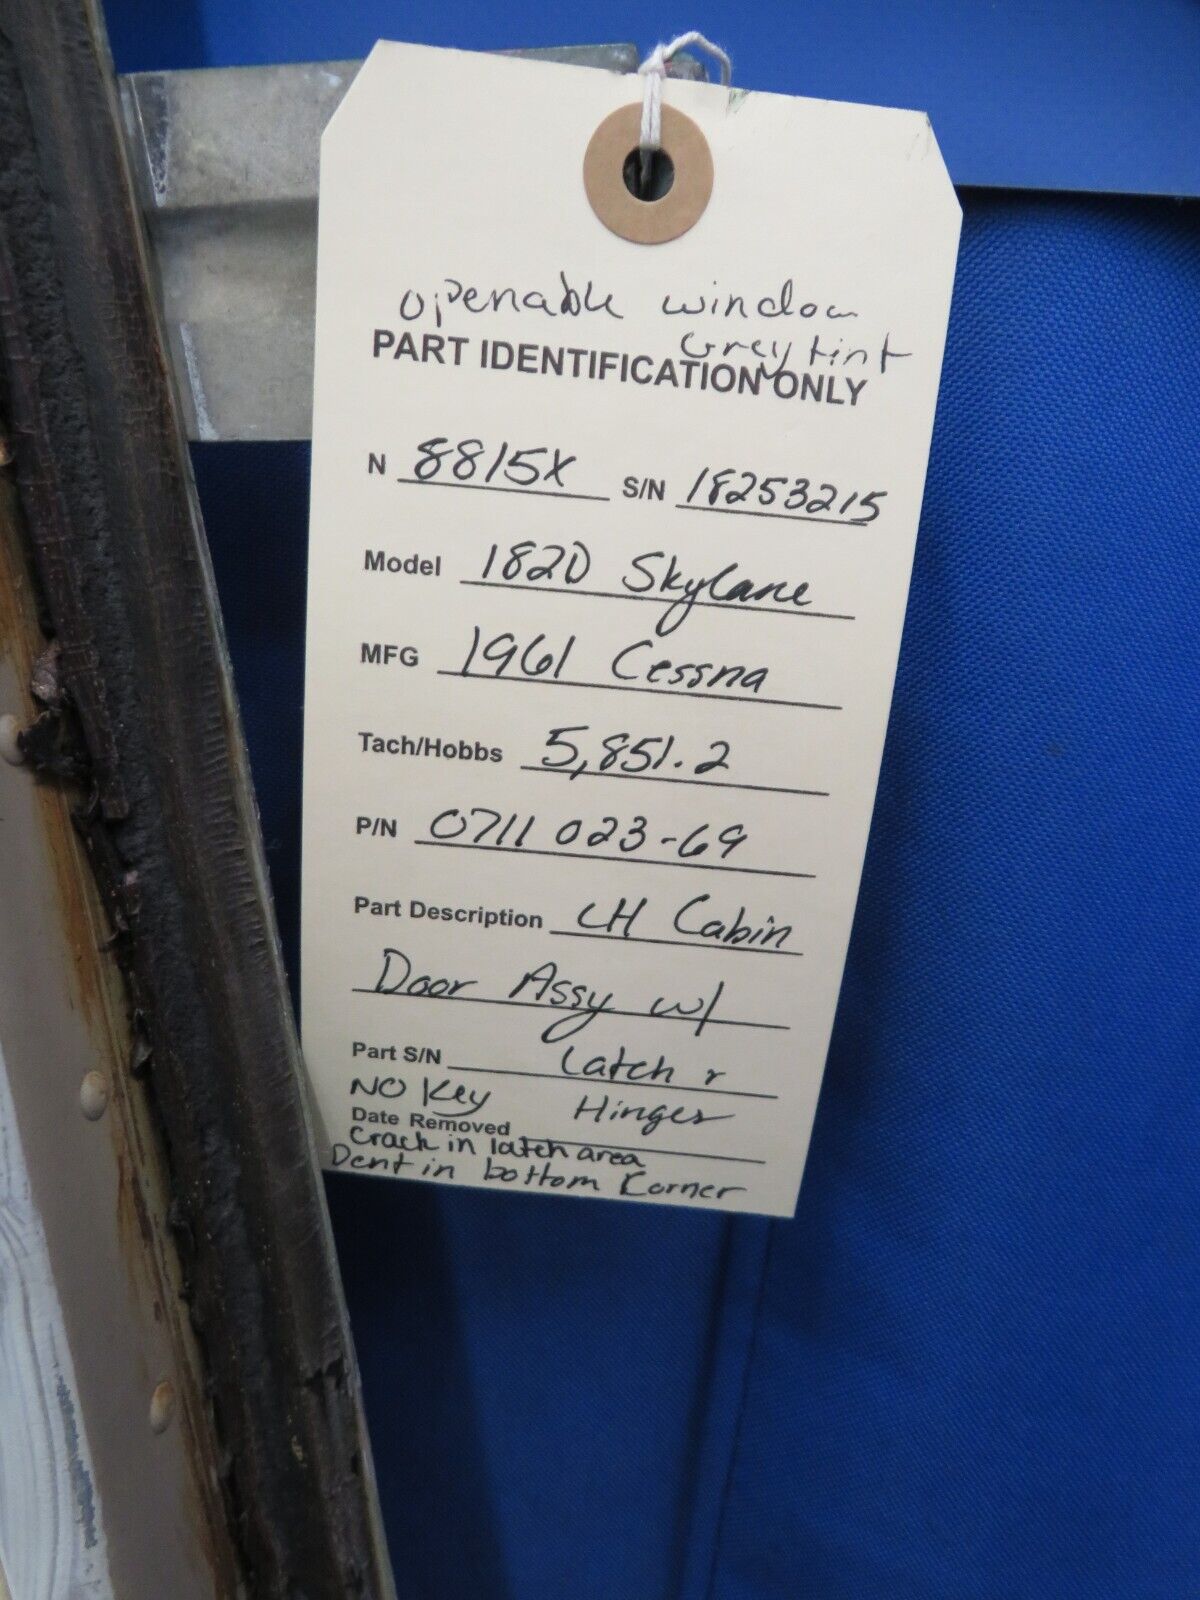 openable window
Grey tint
PART IDENTIFICATION ONLY
N 8815X S/N 18253215
Model 182D Skylane
MFG 1961 Cessna
Tach/Hobbs 5,851.2
P/N 0711023-69
Part Description LH Cabin
Door Assy w/
Part S/N Latch &
NO Key Hinges
Date Removed
Crack in latch area
Dent in bottom Corner